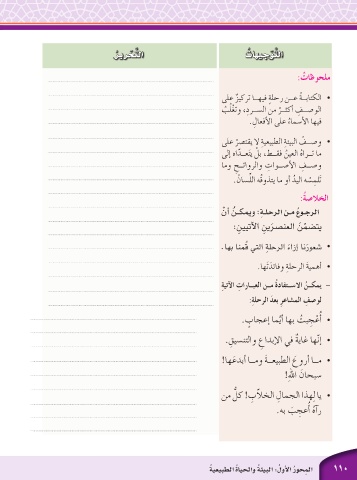 التَّوْجيهاتُ
التَّحْريرُ
ملحوظاتٌ:
• الكتابةُ عن رحلةٍ فيها تركيزٌ على
الوصفِ أكثرُ من السردِ، وتغلُبُ
فيها الأسماءُ على الأفعالِ.
• وصفُ البيئةِ الطبيعيةِ لا يقتصرُ على
ما تراهُ العينُ فقط، بل يتعدّاه إلى
وصفِ الأصواتِ والروائحِ وما
تلمِسُه اليدُ أو ما يتذوقُه اللّسانُ.
الخلاصةُ:
الرجوعُ من الرحلةِ: ويمكنُ أنْ
يتضمّنَ العنصرَينِ الآتيينِ:
• شعورَنا إزاءَ الرحلةِ التي قُمنا بها.
• أهميةَ الرحلةِ وفائدتَها.
– يمكنُ الاستفادةُ من العباراتِ الآتيةِ
لوصفِ المشاعرِ بعدَ الرحلةِ:
• أُعْجِبتُ بها أيَّما إعجابٍ.
• إنّها غايةٌ في الإبداعِ والتنسيقِ.
• ما أروعَ الطبيعةَ وما أبدعَها!
سبحانَ اللهِ!
• يا لِهذا الجمالِ الخلاّبِ! كلُّ من
رآهُ أُعجِبَ به.
١١٠
المحورُ الأولُ: البيئةُ والحياةُ الطبيعيةُ